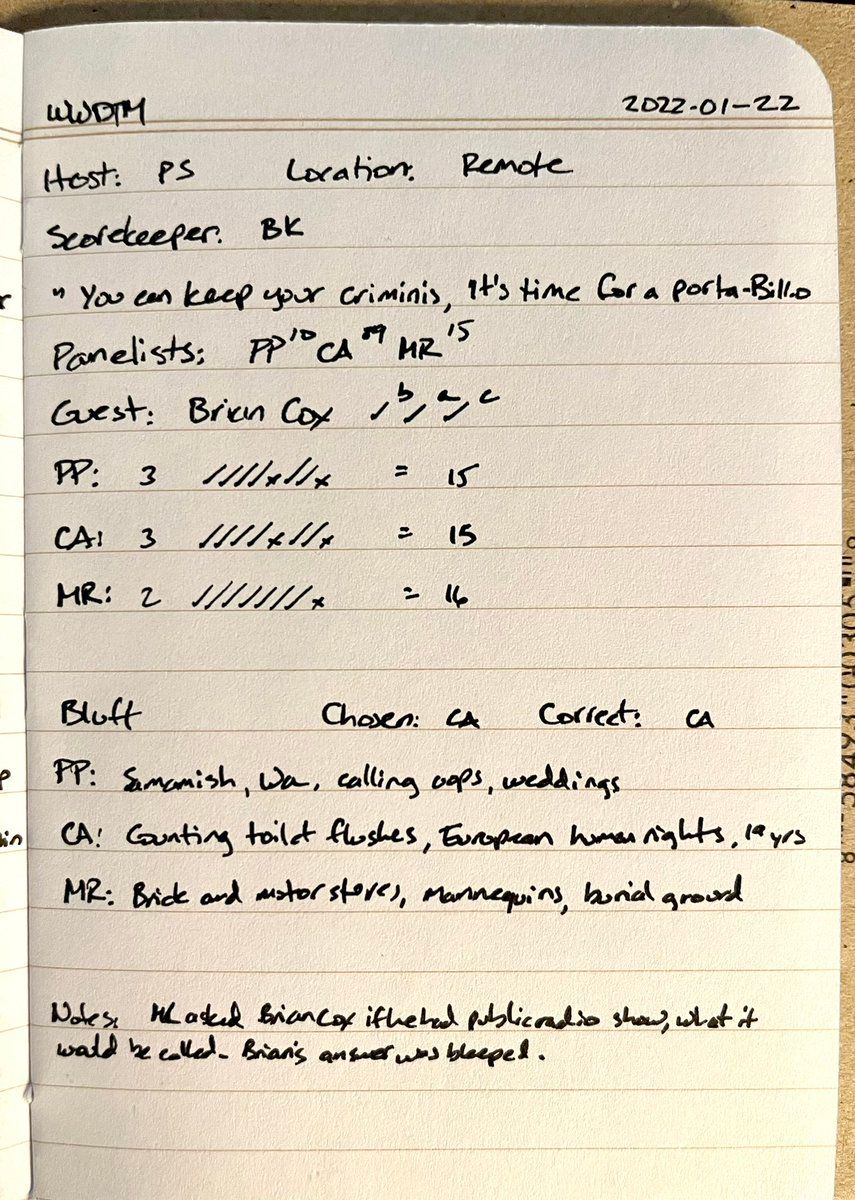 WWDTM 2022-01-22
Host: PS Location: Remote
Scorekeeper: BK
" You can keep your criminis, It's time for a porta-Bill.o
Panelists: PP 10 CA 9 MR 15
Guest: Brian Cox ✓ b ✓ a ✓ c
PP: 3 ////x//x = 15
CA: 3 ////x//x = 15
MR: 2 ///////x = 16
Bluff Chosen: CA Correct: CA
PP: Samamish, Wa, calling oops, weddings
CA: Counting toilet flushes, European human rights, 19 yrs
MR: Brick and motor stores, Mannequins, burial ground
Notes: asked Brian Cox if he had public radio show, what it
would be called. Brian's answer was bleeped.